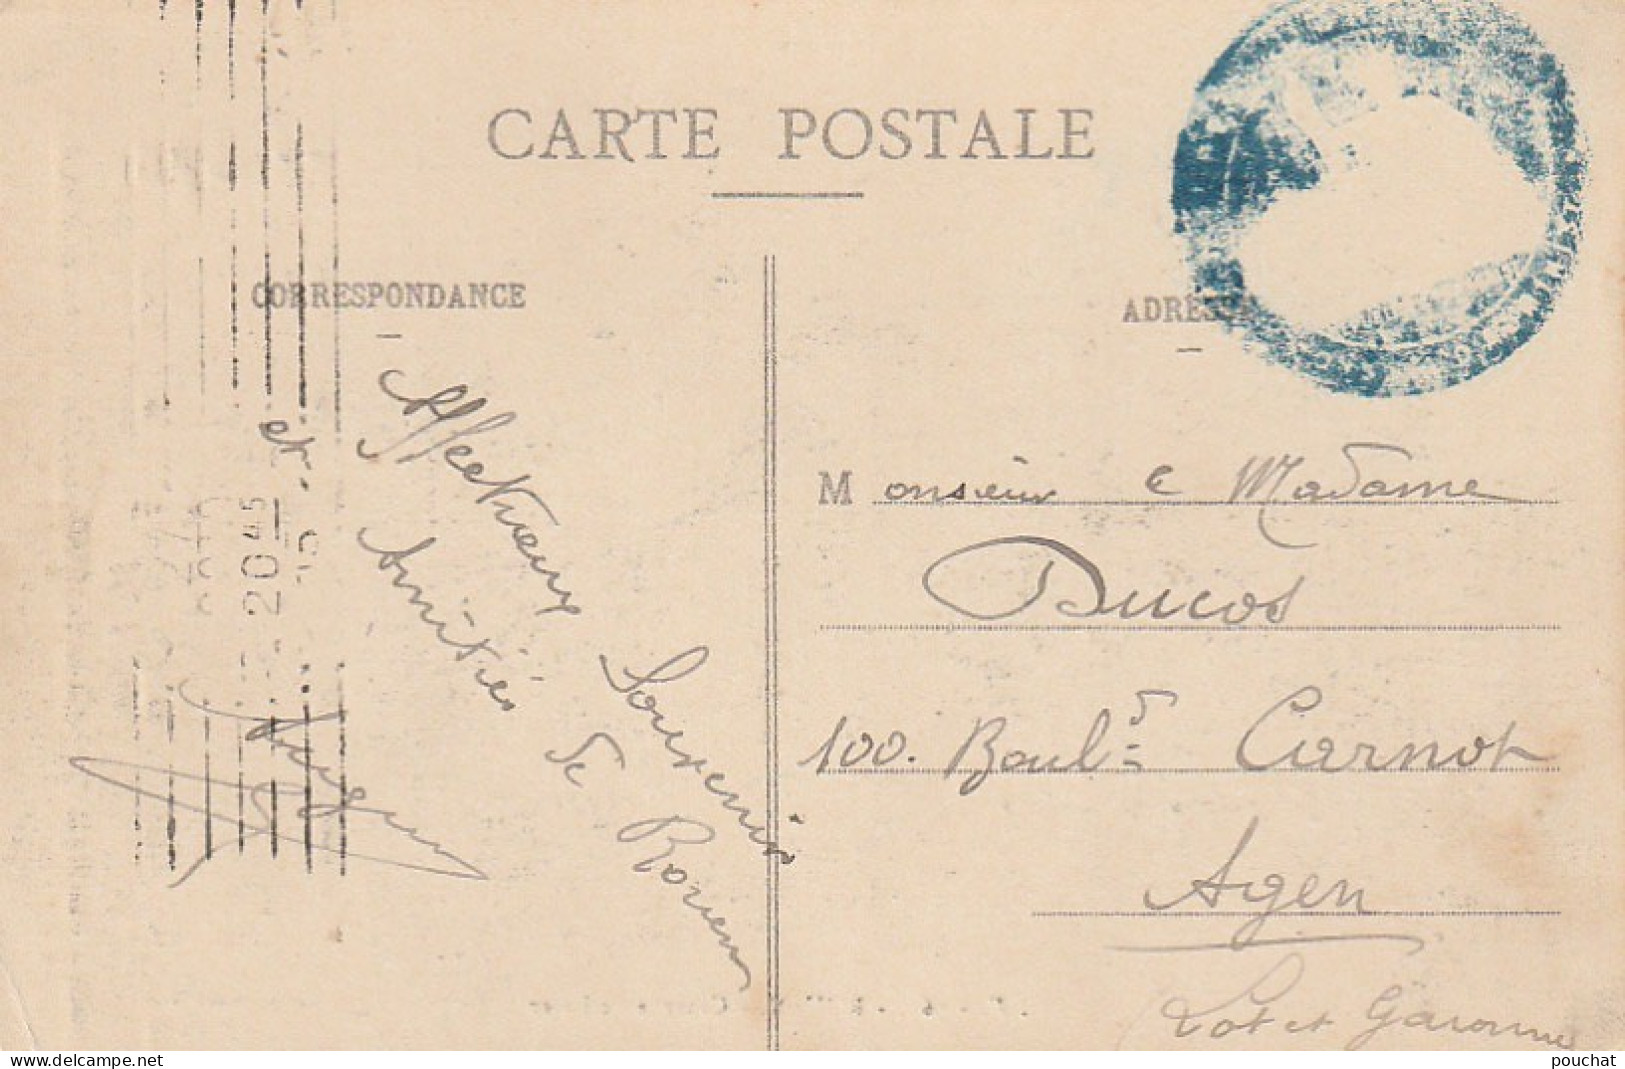 CARTE POSTALE
CORRESPONDANCE
ADRESSE
Affectueux Souvenir
et
Amitiés de Rouen
20 45
Monsieur e Madame
Ducos
100. Boul.d Carnot
Agen
Lot et Garonne
delcampe.net
pouchat